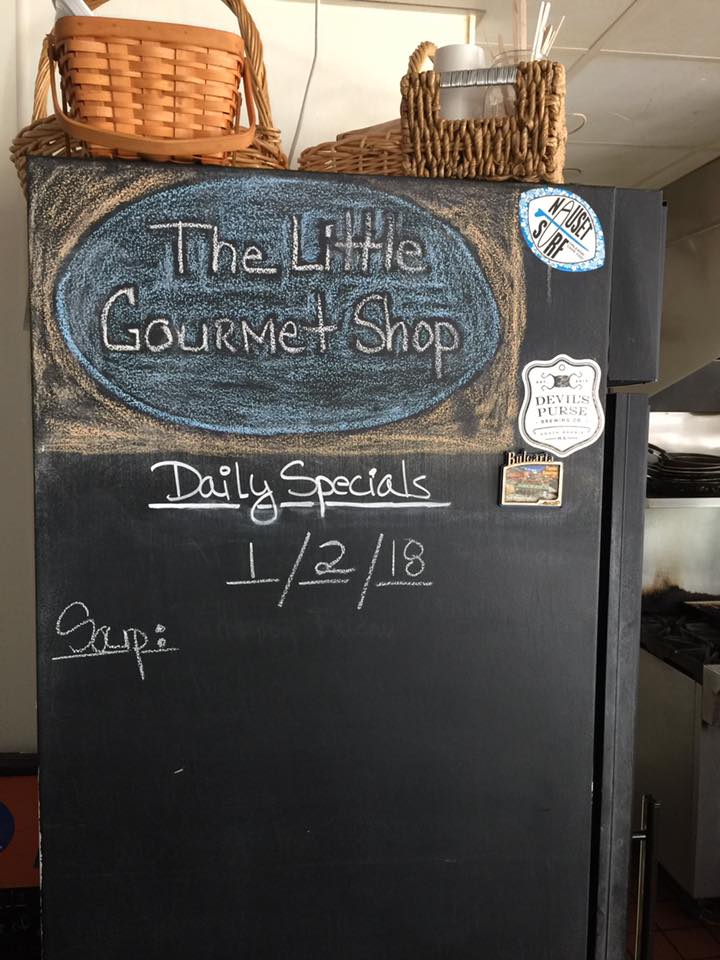 The Little
Gourmet Shop
NAUSET
SURF
DEVIL'S
PURSE
BREWING CO.
Bulgaria
Daily Specials
1/2/18
Soup: